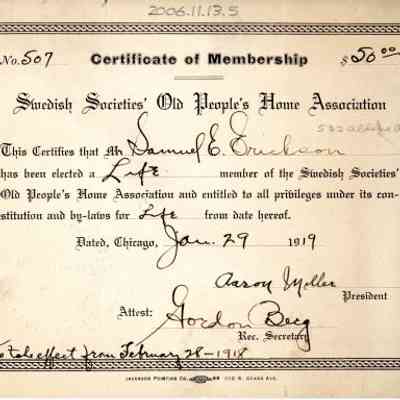 2006.11.13.5
No. 507 Certificate of Membership $50.00
Swedish Societies' Old People's Home Association
This Certifies that Mr Samuel E. Erickson
has been elected a Life member of the Swedish Societies'
Old People's Home Association and entitled to all privileges under its con-
stitution and by-laws for Life from date hereof.
Dated, Chicago, Jan. 29 1919
Aaron Moller
President
Attest: Gordon Berg
Rec. Secretary
to take effect from February 28-1918
PRINTING CO.